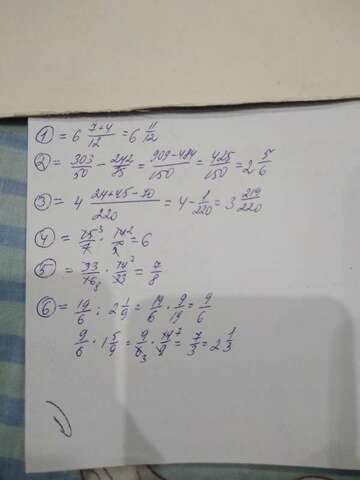 ① = 6 7+4/12 = 6 11/12
② = 303/50 - 242/75 = 909-484/150 = 425/150 = 2 5/6
③ = 4 24+45-70/220 = 4 - 1/220 = 3 219/220
④ = 15³/7 · 14²/5 = 6
⑤ = 33/16 8 · 14⁷/33 = 7/8
⑥ = 19/6 : 2 1/9 = 19/6 · 9/19 = 9/6
9/6 · 1 5/9 = 9/6 3 · 14⁷/9 = 7/3 = 2 1/3